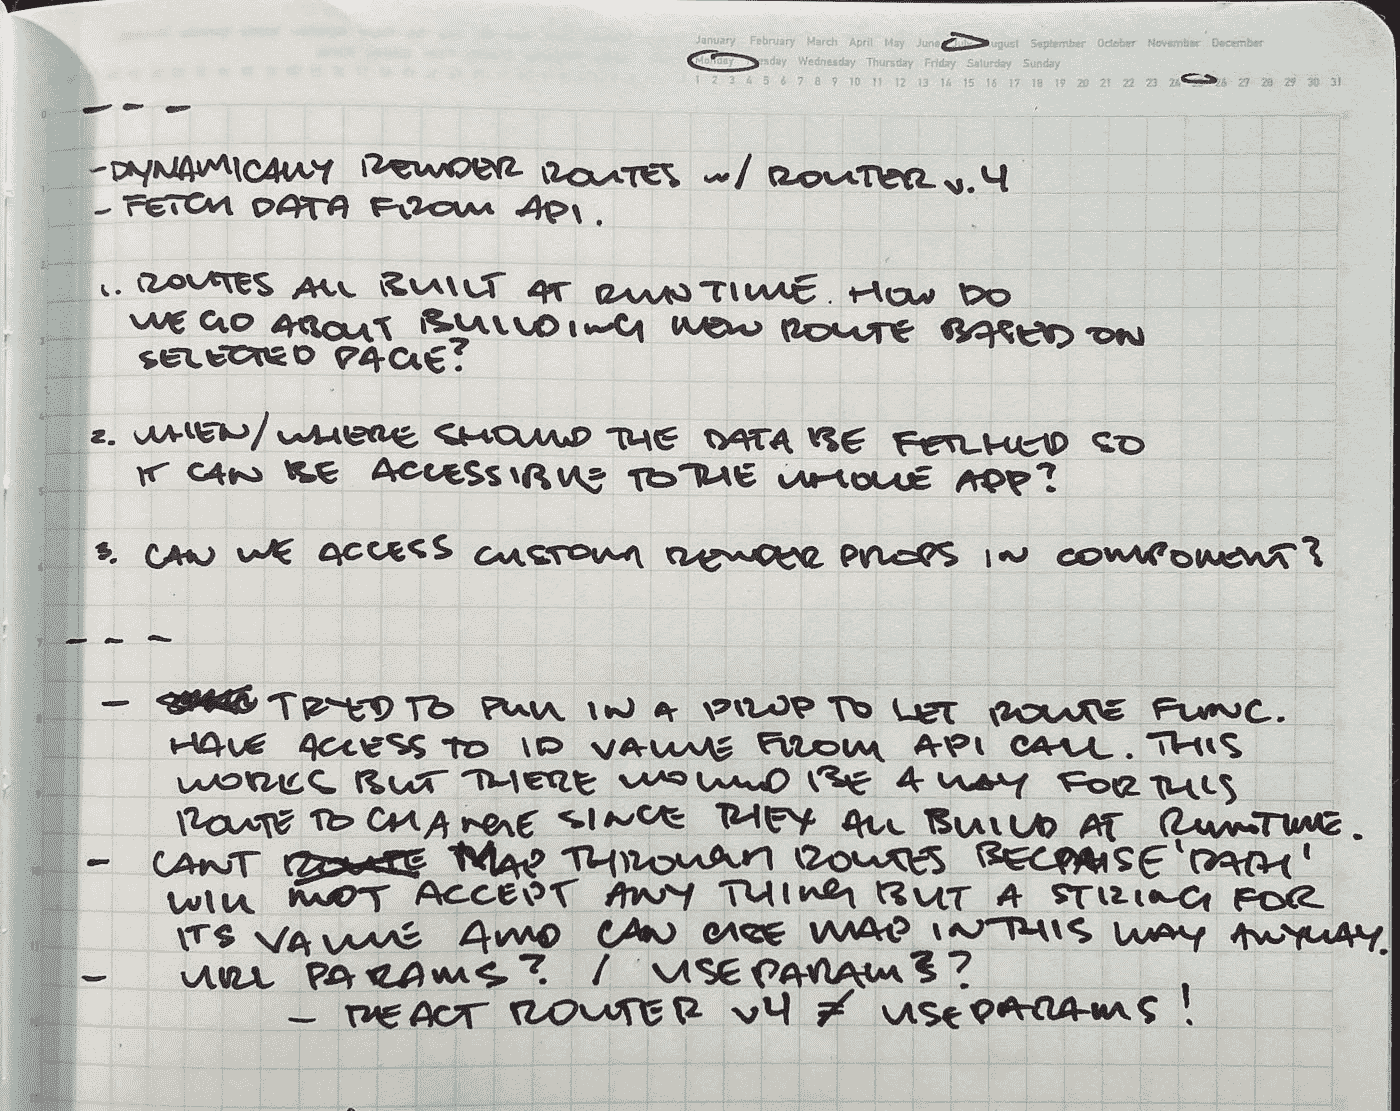 January February March April May June July August September October November December
Monday Tuesday Wednesday Thursday Friday Saturday Sunday
1 2 3 4 5 6 7 8 9 10 11 12 13 14 15 16 17 18 19 20 21 22 23 24 25 26 27 28 29 30 31
- - -
- DYNAMICALLY RENDER ROUTES w/ ROUTER v.4
- FETCH DATA FROM API.
1. ROUTES ALL BUILT AT RUNTIME. HOW DO
WE GO ABOUT BUILDING NEW ROUTE BASED ON
SELECTED PAGE?
2. WHEN/WHERE SHOULD THE DATA BE FETCHED SO
IT CAN BE ACCESSIBLE TO THE WHOLE APP?
3. CAN WE ACCESS CUSTOM RENDER PROPS IN COMPONENT?
- - -
- TRYED TO PULL IN A PROP TO LET ROUTE FUNC.
HAVE ACCESS TO ID VALUE FROM API CALL. THIS
WORKS BUT THERE WOULD BE A WAY FOR THIS
ROUTE TO CHANGE SINCE THEY ALL BUILD AT RUNTIME.
- CANT MAP THROUGH ROUTES BECAUSE 'PATH'
WILL NOT ACCEPT ANY THING BUT A STRING FOR
ITS VALUE AND CAN MAP IN THIS WAY ANYWAY.
- URL PARAMS? / USEPARAMS?
- REACT ROUTER v4 ≠ USEPARAMS!